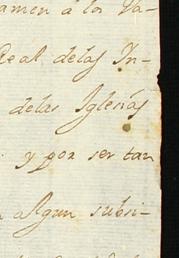 amen á los Va-
Real de las In-
de las Iglesias
y por ser tan
algun subsi-